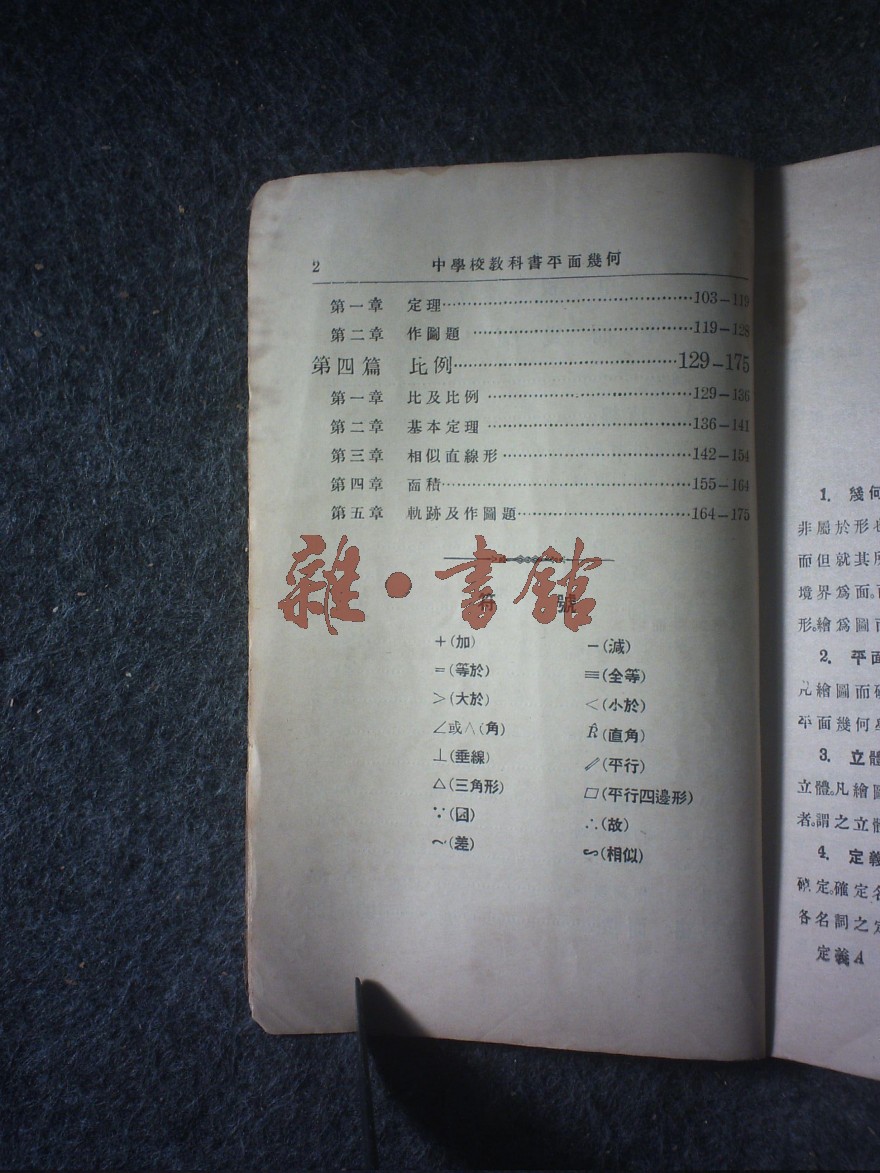 2 中學校教科書平面幾何
第一章 定理 103–119
第二章 作圖題 119–128
第四篇 比例 129–175
第一章 比及比例 129–136
第二章 基本定理 136–141
第三章 相似直線形 142–154
第四章 面積 155–164
第五章 軌跡及作圖題 164–175
雜·書館
符號
+(加) −(減)
=(等於) ≡(全等)
>(大於) <(小於)
∠或∧(角) R̂(直角)
⊥(垂線) ∥(平行)
△(三角形) ▱(平行四邊形)
∵(因) ∴(故)
～(差) ∽(相似)
1. 幾何
非屬於形也
而但就其所
境界爲面。
形。繪爲圖而
2. 平面
凡繪圖而
平面幾何
3. 立體
立體。凡繪圖
者。謂之立體
4. 定義
確定。確定名
各名詞之定
定義A